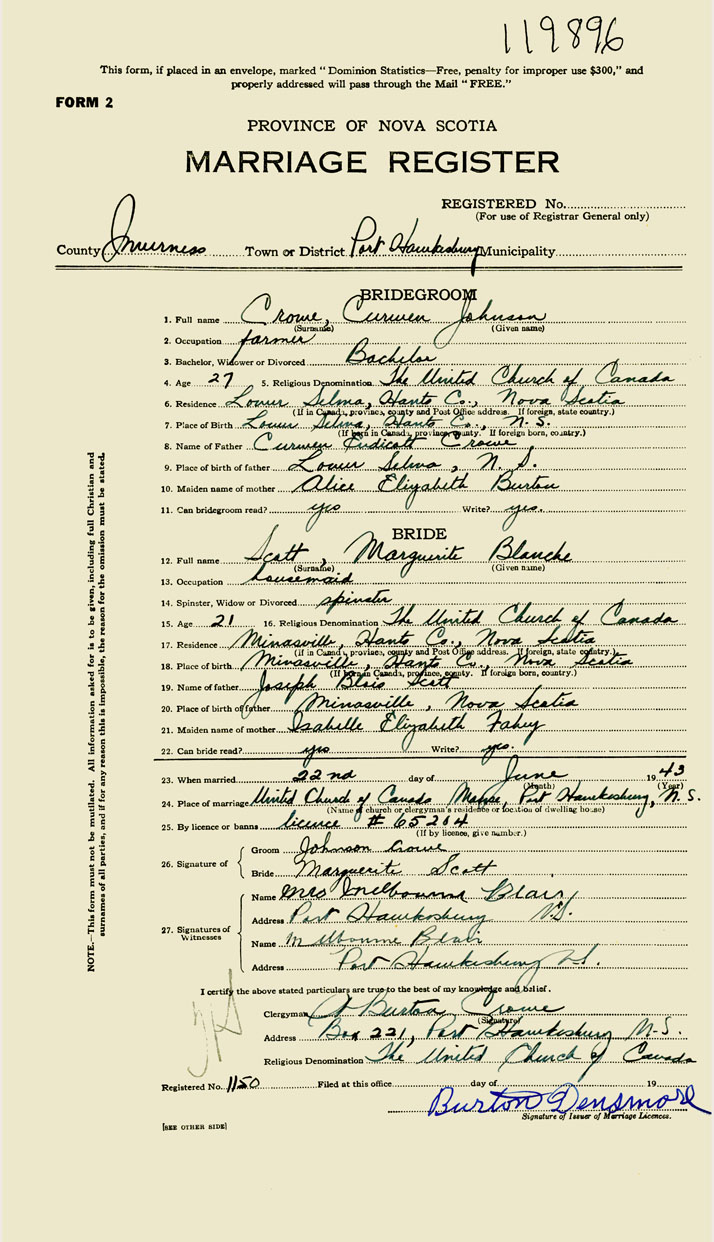 119896
This form, if placed in an envelope, marked “ Dominion Statistics—Free, penalty for improper use $300,” and
properly addressed will pass through the Mail “ FREE.”
FORM 2
PROVINCE OF NOVA SCOTIA
MARRIAGE REGISTER
REGISTERED No.
(For use of Registrar General only)
County Inverness Town or District Port Hawkesbury Municipality
BRIDEGROOM
1. Full name Crowe, Curwen Johnson
(Surname) (Given name)
2. Occupation farmer
3. Bachelor, Widower or Divorced Bachelor
4. Age 27 5. Religious Denomination The United Church of Canada
6. Residence Lower Selma, Hants Co., Nova Scotia
(If in Canada, province, county and Post Office address. If foreign, state country.)
7. Place of Birth Lower Selma, Hants Co., N.S.
(If born in Canada, province, county. If foreign born, country.)
8. Name of Father Curwen Endicott Crowe
9. Place of birth of father Lower Selma, N.S.
10. Maiden name of mother Alice Elizabeth Burton
11. Can bridegroom read? yes Write? yes.
BRIDE
12. Full name Scott, Marguerite Blanche
(Surname) (Given name)
13. Occupation housemaid
14. Spinster, Widow or Divorced spinster
15. Age 21 16. Religious Denomination The United Church of Canada
17. Residence Minasville, Hants Co., Nova Scotia
(If in Canada, province, county and Post Office address. If foreign, state country.)
18. Place of birth Minasville, Hants Co., Nova Scotia
(If born in Canada, province, county. If foreign born, country.)
19. Name of father Joseph Blois Scott
20. Place of birth of father Minasville, Nova Scotia
21. Maiden name of mother Isabelle Elizabeth Fahey
22. Can bride read? yes Write? yes.
23. When married 22nd day of June 1943
(Month) (Year)
24. Place of marriage United Church of Canada Manse, Port Hawkesbury, N.S.
(Name of church or clergyman's residence or location of dwelling house)
25. By licence or banns licence # 65204
(If by licence, give number.)
26. Signature of
Groom Johnson Crowe
Bride Marguerite Scott
27. Signatures of Witnesses
Name Mrs Melbourne Blair
Address Port Hawkesbury N.S.
Name Melbourne Blair
Address Port Hawkesbury N.S.
I certify the above stated particulars are true to the best of my knowledge and belief.
Clergyman A Burton Crowe
(Signature)
Address Box 221, Port Hawkesbury N.S.
Religious Denomination The United Church of Canada
Registered No. 1150 Filed at this office day of 19
Burton Densmore
Signature of Issuer of Marriage Licences.
[SEE OTHER SIDE]
NOTE.—This form must not be mutilated. All information asked for is to be given, including full Christian and
surnames of all parties, and if for any reason this is impossible, the reason for the omission must be stated.